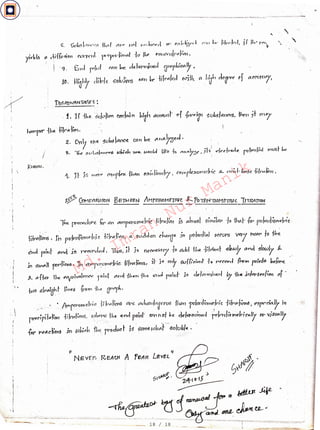 c. Substances that are not reduced or oxidised can be titrated, if the
yields a diffusion current proportional to the concentration.
9. End point can be determined graphically.
10. Highly dilute solutions can be titrated with a high degree of accuracy.
DISADVANTAGES :
1. If the solution contain high amount of foreign substances, then it may
hamper the titration.
2. Only one substance can be analysed.
3. The substances which one would like to analyse, its electrode potential must be
known.
4. It is more complex than acidimetry, complexometric & acid-base titration.
COMPARISON BETWEEN AMPEROMETRIC & POTENTIOMETRIC TITRATION
The procedure for an amperometric titration is almost similar to that for potentiometric
titrations. In potentiometric titration, a sudden change in potential occurs very near to the
end point and is recorded. Thus, it is necessary to add the titrant slowly and slowly &
in small portions. In amperometric titrations, it is only sufficient to record few points before
& after the equivalence point and then the end point is determined by the intersection of
two straight lines from the graph.
Amperometric titrations are advantageous than potentiometric titrations, especially in
precipitation titrations, where the end point cannot be determined potentiometrically or visually
for reactions in which the product is somewhat soluble.
"NEVER REACH A PEAK LEVEL"
The Greatest
Only and one chance.
Md. Imran Nur Manik
18 / 18